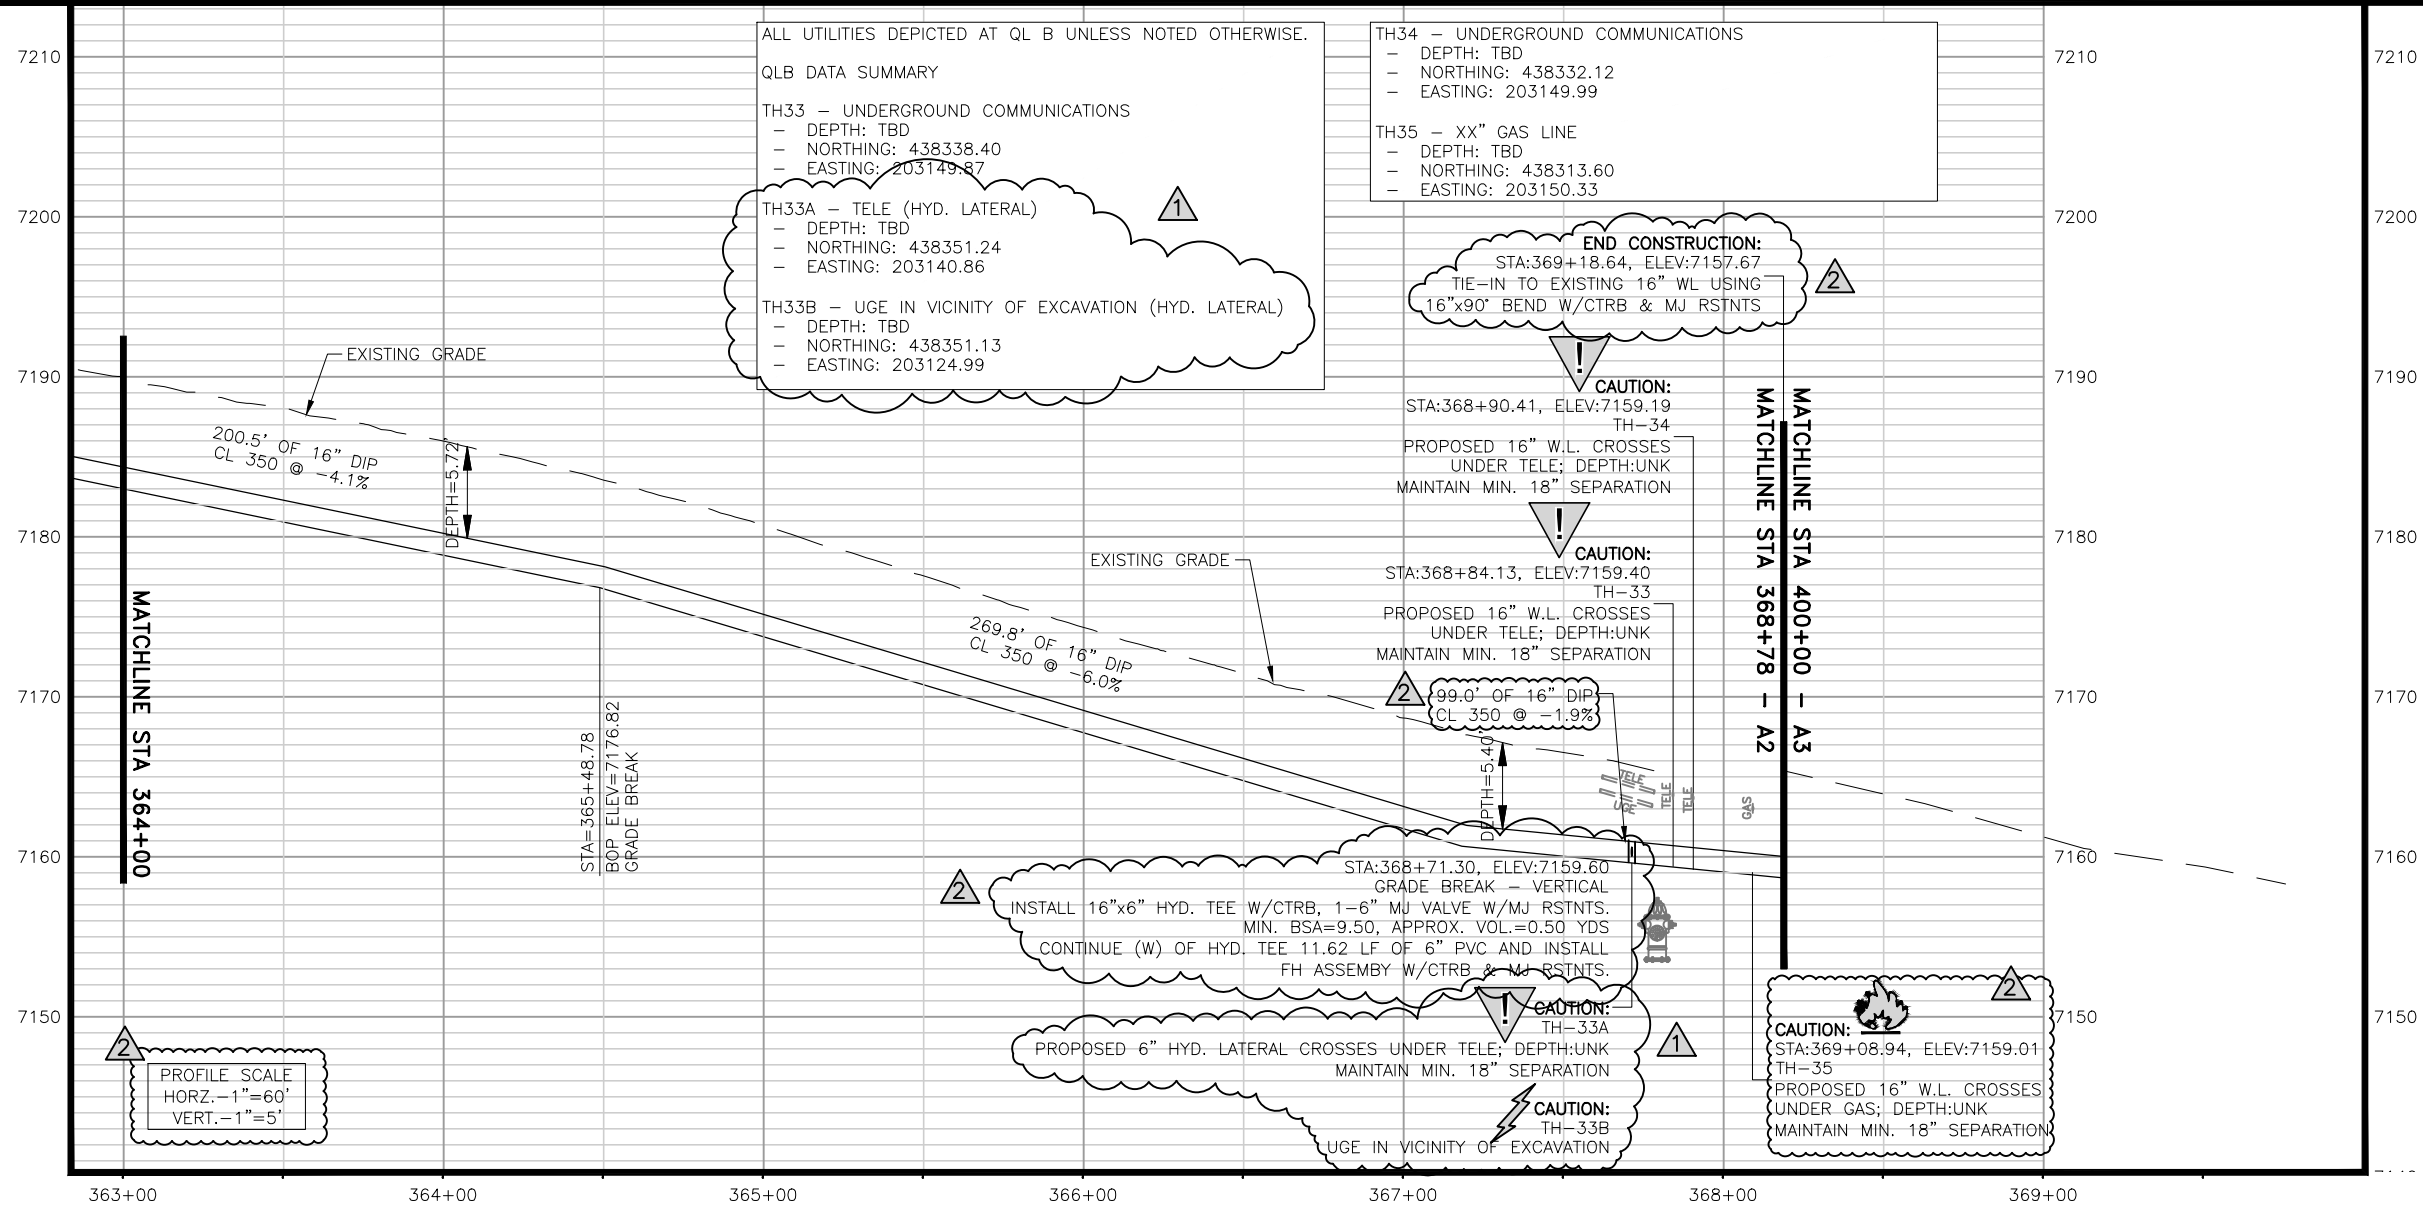 ALL UTILITIES DEPICTED AT QL B UNLESS NOTED OTHERWISE.
QLB DATA SUMMARY
TH33 – UNDERGROUND COMMUNICATIONS
– DEPTH: TBD
– NORTHING: 438338.40
– EASTING: 203149.87
TH33A – TELE (HYD. LATERAL)
– DEPTH: TBD
– NORTHING: 438351.24
– EASTING: 203140.86
TH33B – UGE IN VICINITY OF EXCAVATION (HYD. LATERAL)
– DEPTH: TBD
– NORTHING: 438351.13
– EASTING: 203124.99
1
TH34 – UNDERGROUND COMMUNICATIONS
– DEPTH: TBD
– NORTHING: 438332.12
– EASTING: 203149.99
TH35 – XX" GAS LINE
– DEPTH: TBD
– NORTHING: 438313.60
– EASTING: 203150.33
END CONSTRUCTION:
STA:369+18.64, ELEV:7157.67
TIE–IN TO EXISTING 16" WL USING
16"x90° BEND W/CTRB & MJ RSTNTS
2
!
CAUTION:
STA:368+90.41, ELEV:7159.19
TH–34
PROPOSED 16" W.L. CROSSES
UNDER TELE; DEPTH:UNK
MAINTAIN MIN. 18" SEPARATION
!
CAUTION:
STA:368+84.13, ELEV:7159.40
TH–33
PROPOSED 16" W.L. CROSSES
UNDER TELE; DEPTH:UNK
MAINTAIN MIN. 18" SEPARATION
MATCHLINE STA 368+78 – A2
MATCHLINE STA 400+00 – A3
MATCHLINE STA 364+00
EXISTING GRADE
200.5' OF 16" DIP
CL 350 @ –4.1%
DEPTH=5.72'
EXISTING GRADE
269.8' OF 16" DIP
CL 350 @ –6.0%
STA=365+48.78
BOP ELEV=7176.82
GRADE BREAK
2
99.0' OF 16" DIP
CL 350 @ –1.9%
DEPTH=5.40'
TELE
UGE
TELE
TELE
GAS
2
STA:368+71.30, ELEV:7159.60
GRADE BREAK – VERTICAL
INSTALL 16"x6" HYD. TEE W/CTRB, 1–6" MJ VALVE W/MJ RSTNTS.
MIN. BSA=9.50, APPROX. VOL.=0.50 YDS
CONTINUE (W) OF HYD. TEE 11.62 LF OF 6" PVC AND INSTALL
FH ASSEMBY W/CTRB & MJ RSTNTS.
!
CAUTION:
TH–33A
PROPOSED 6" HYD. LATERAL CROSSES UNDER TELE; DEPTH:UNK
MAINTAIN MIN. 18" SEPARATION
1
CAUTION:
TH–33B
UGE IN VICINITY OF EXCAVATION
2
CAUTION:
STA:369+08.94, ELEV:7159.01
TH–35
PROPOSED 16" W.L. CROSSES
UNDER GAS; DEPTH:UNK
MAINTAIN MIN. 18" SEPARATION
2
PROFILE SCALE
HORZ.–1"=60'
VERT.–1"=5'
7210
7200
7190
7180
7170
7160
7150
7210
7200
7190
7180
7170
7160
7150
7210
7200
7190
7180
7170
7160
7150
363+00
364+00
365+00
366+00
367+00
368+00
369+00